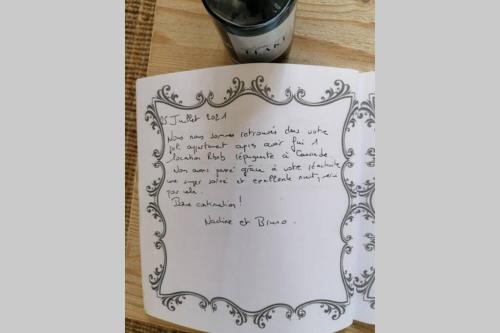 25 Juillet 2021
Nous nous sommes retrouvés dans votre
joli appartement après avoir fui 1
location Rbnb répugnante à
Nous avons passé grâce à votre
une super soirée et excellente nuit, merci
pour cela.
Bonne continuation!
Nadine et Bruno.